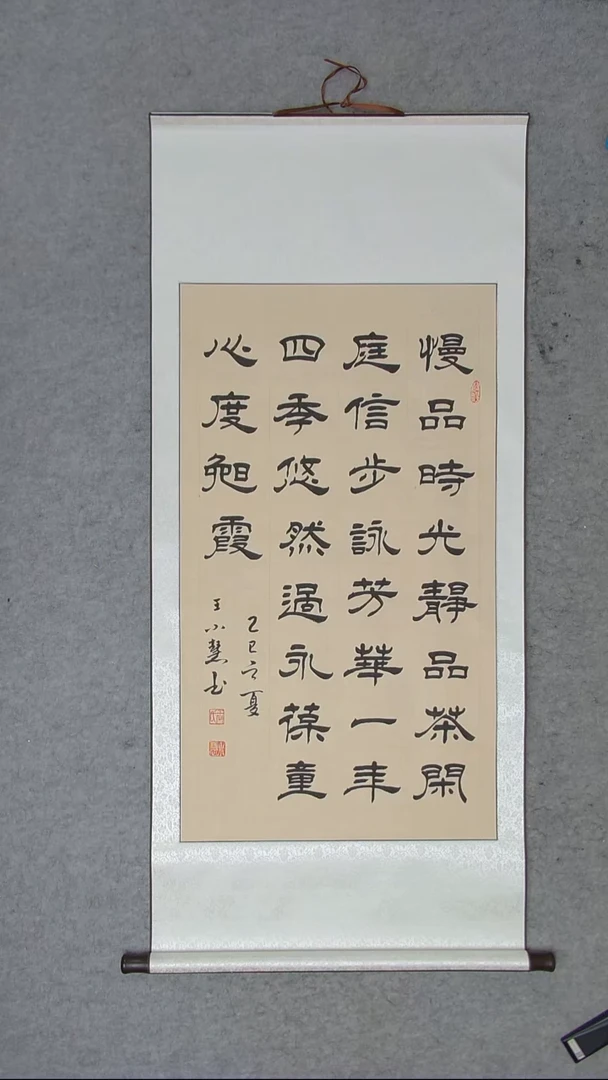 慢品時光靜品茶閑
庭信步詠芳華一年
四季悠然過永葆童
心度晚霞
乙巳立夏
王小慧书